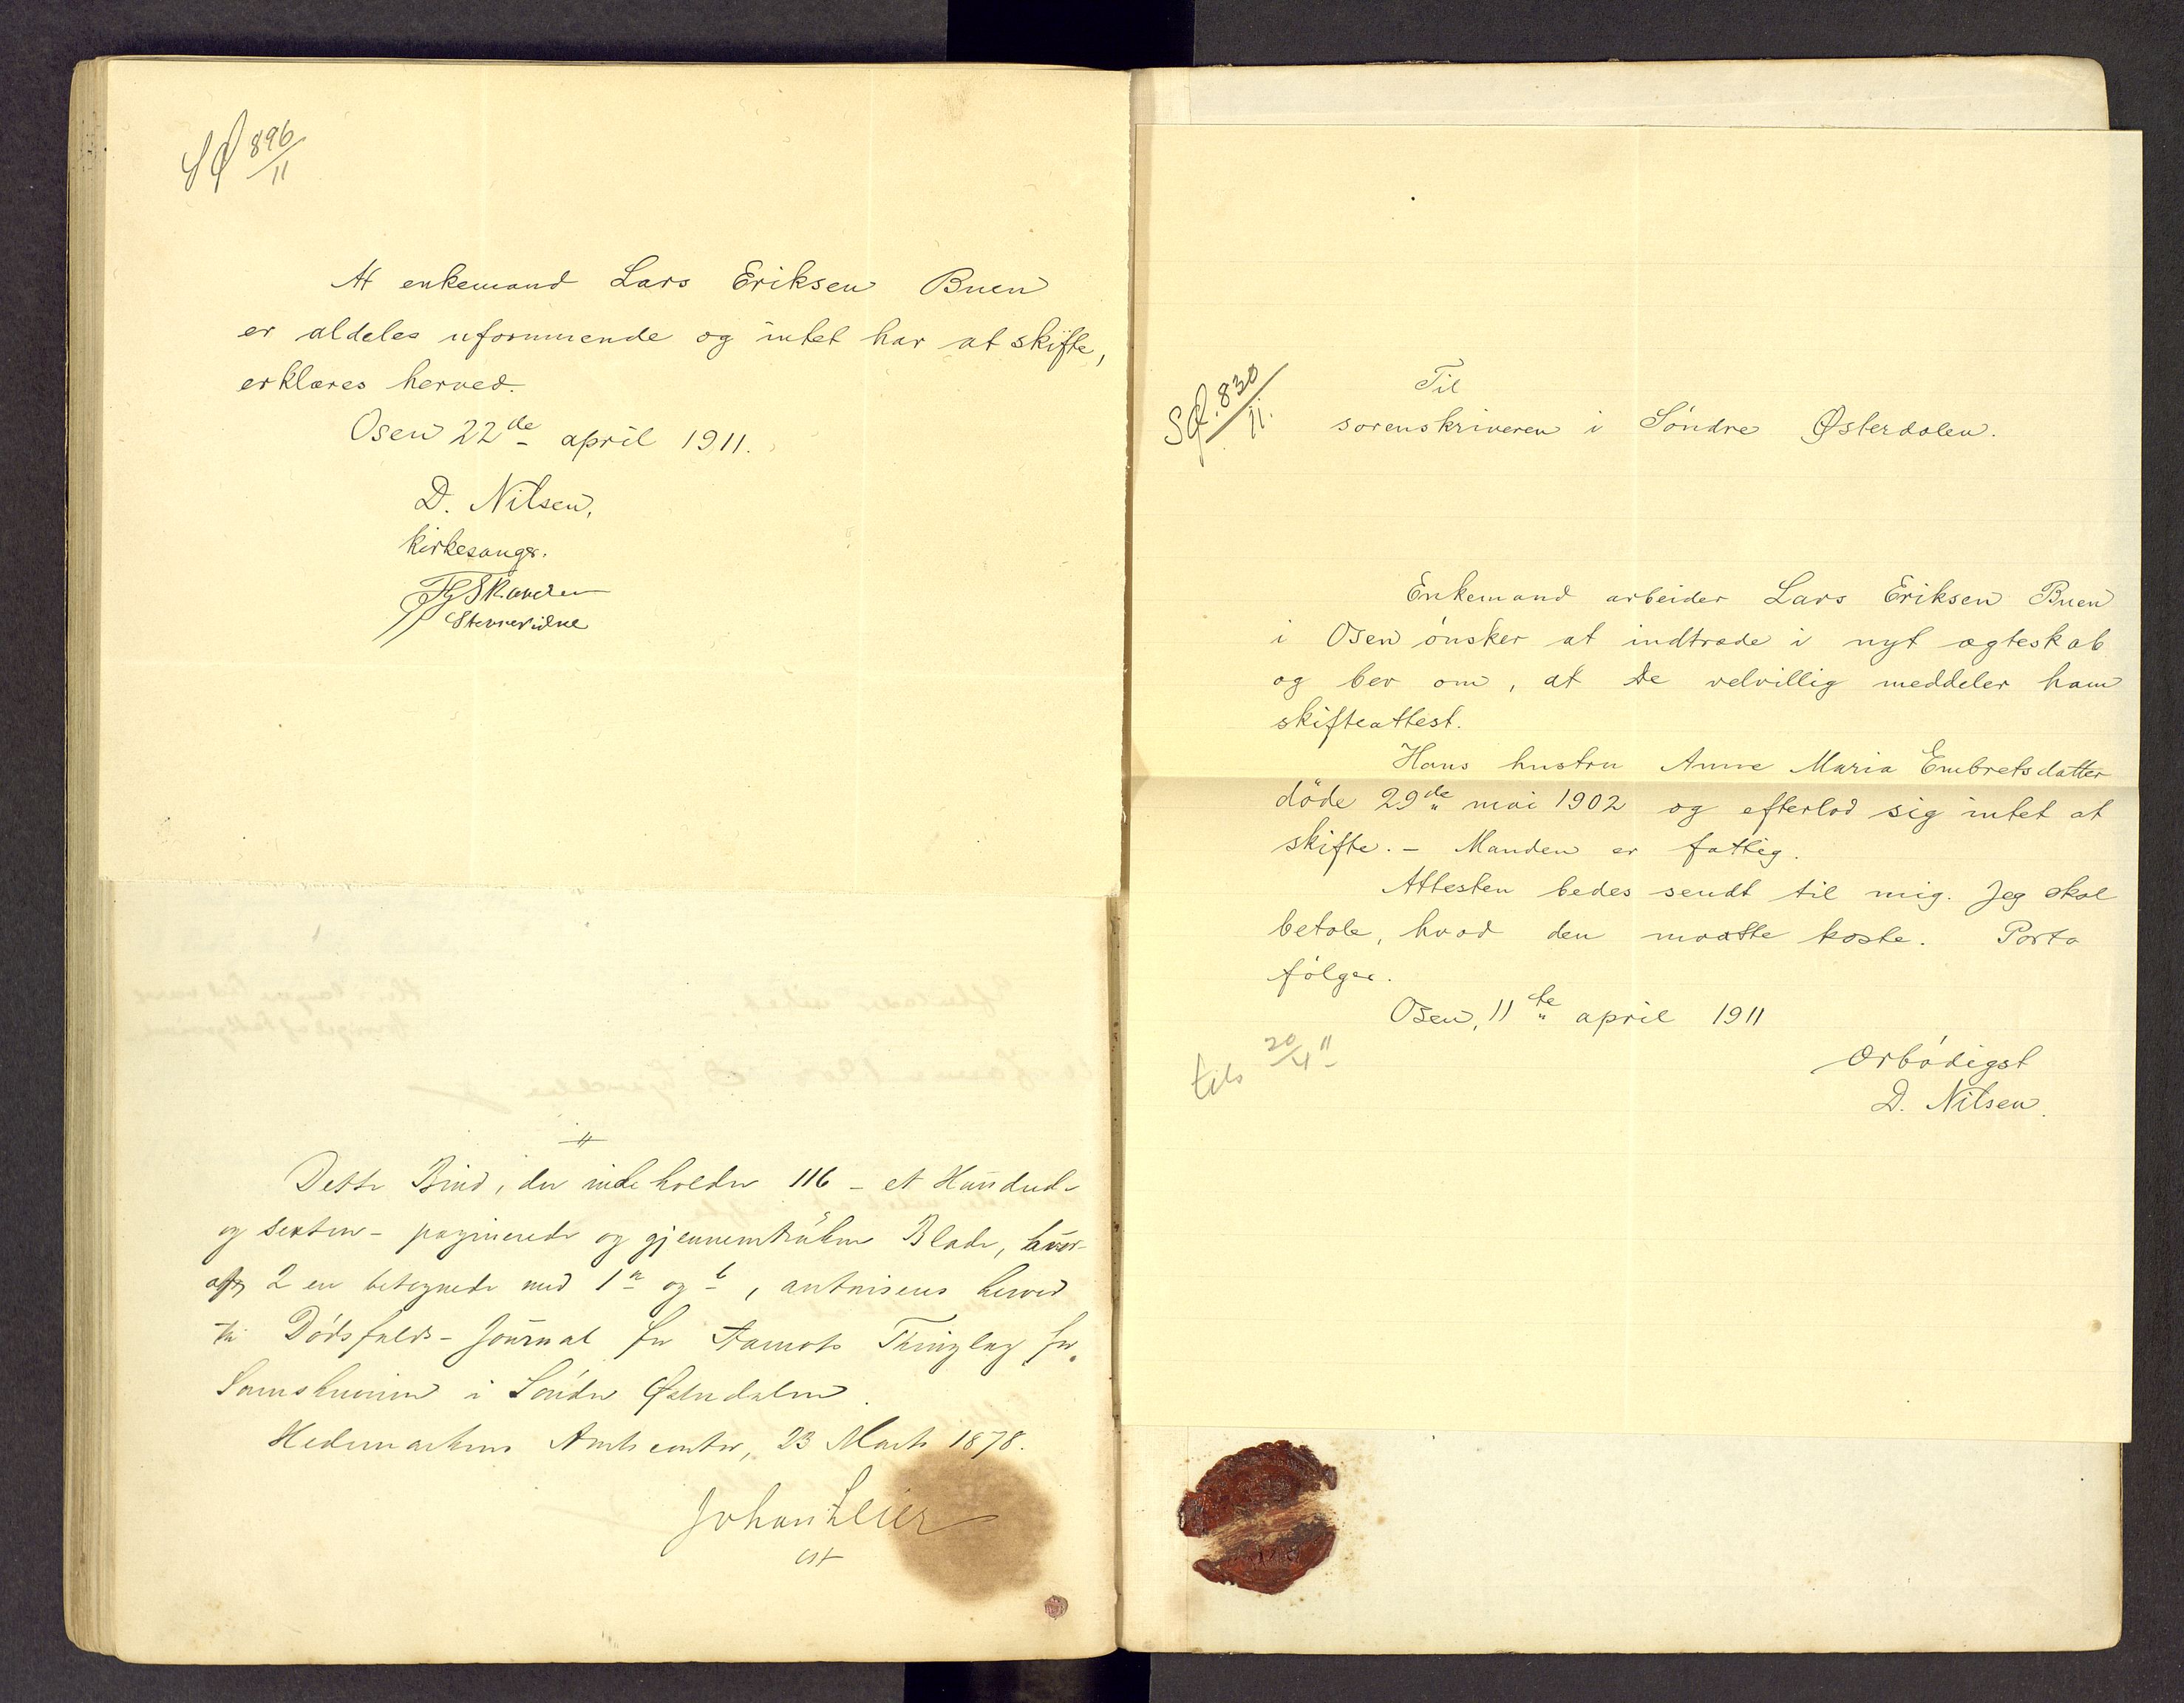 SØ 896/11
At enkemand Lars Eriksen Buen
er aldeles uformuende og intet har at skifte,
erklæres herved.
Osen 22de april 1911.
D. Nilsen,
kirkesanger.
Stevnevidne
Dette Bind, der indeholder 116 - et Hundrede
og sexten - paginerede og gjennemtrukne Blade, hvor-
af 2 ere betegnede med 1 a og b, autoriseres herved
til Dødsfalds-Journal for Aamots Thinglag for
Sorenskriveren i Søndre Østerdalen.
Hedemarkens Amtscontor, 23 Marts 1878.
Johan
cst
SØ. 830/11.
Til
sorenskriveren i Søndre Østerdalen.
Enkemand arbeider Lars Eriksen Buen
i Osen ønsker at indtræde i nyt ægteskab
og ber om, at De velvillig meddeler ham
skifteattest.
Hans hustru Anne Maria Embretsdatter
døde 29de mai 1902 og efterlod sig intet at
skifte. - Manden er fattig.
Attesten bedes sendt til mig. Jeg skal
betale, hvad den maatte koste. Porto
følger.
Osen, 11te april 1911
20/4 11
Ærbødigst
D. Nilsen.